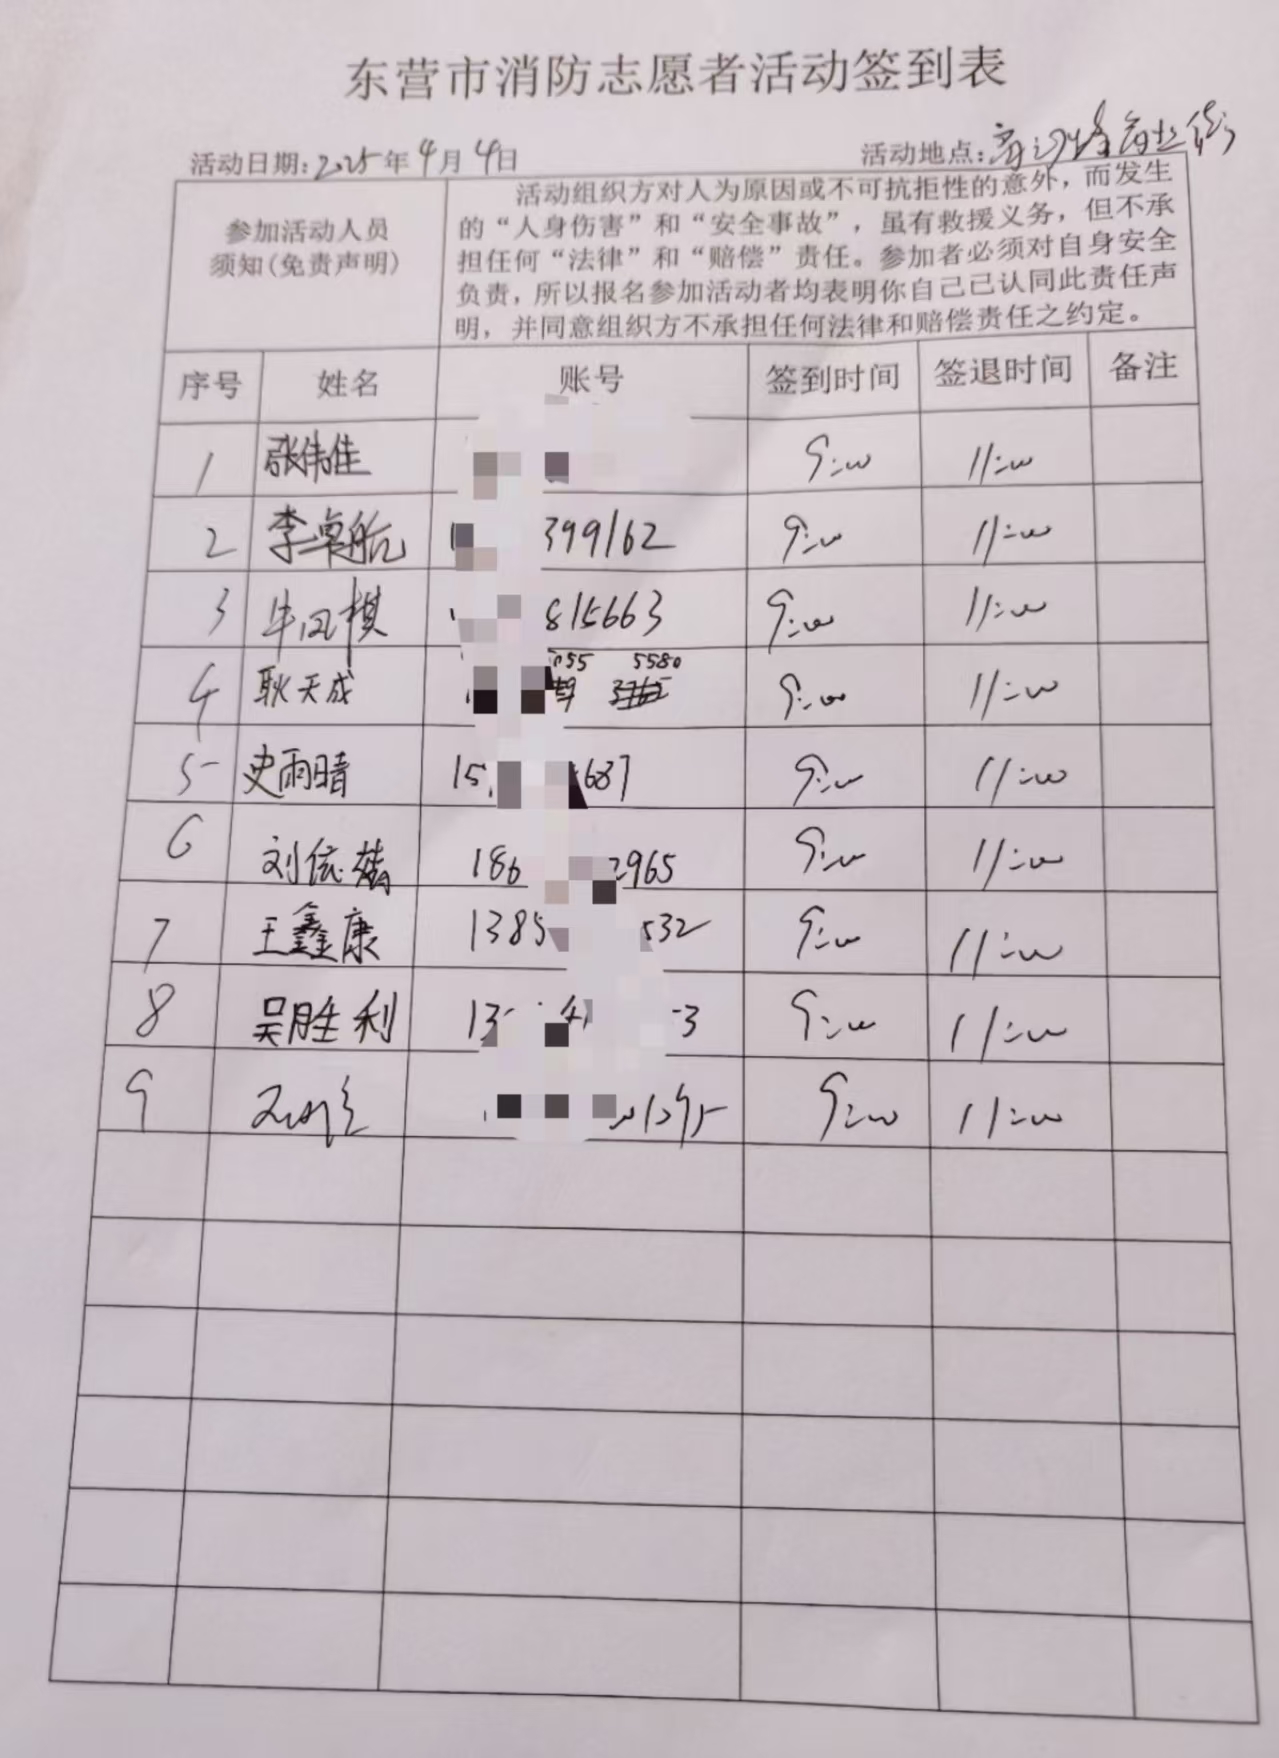 东营市消防志愿者活动签到表
活动日期:2025年4月4日 活动地点:
参加活动人员
须知(免责声明)
活动组织方对人为原因或不可抗拒性的意外，而发生
的“人身伤害”和“安全事故”，虽有救援义务，但不承
担任何“法律”和“赔偿”责任。参加者必须对自身安全
负责，所以报名参加活动者均表明你自己己认同此责任声
明，并同意组织方不承担任何法律和赔偿责任之约定。
序号 姓名 账号 签到时间 签退时间 备注
1 张伟佳 9:00 11:00
2 李卓航 399162 9:00 11:00
3 牛凤棋 815663 9:00 11:00
4 耿天成 55 5580 9:00 11:00
5 史雨晴 15 687 9:00 11:00
6 刘依 186 2965 9:00 11:00
7 王鑫康 1385 532 9:00 11:00
8 吴胜利 13 3 9:00 11:00
9 9:00 11:00